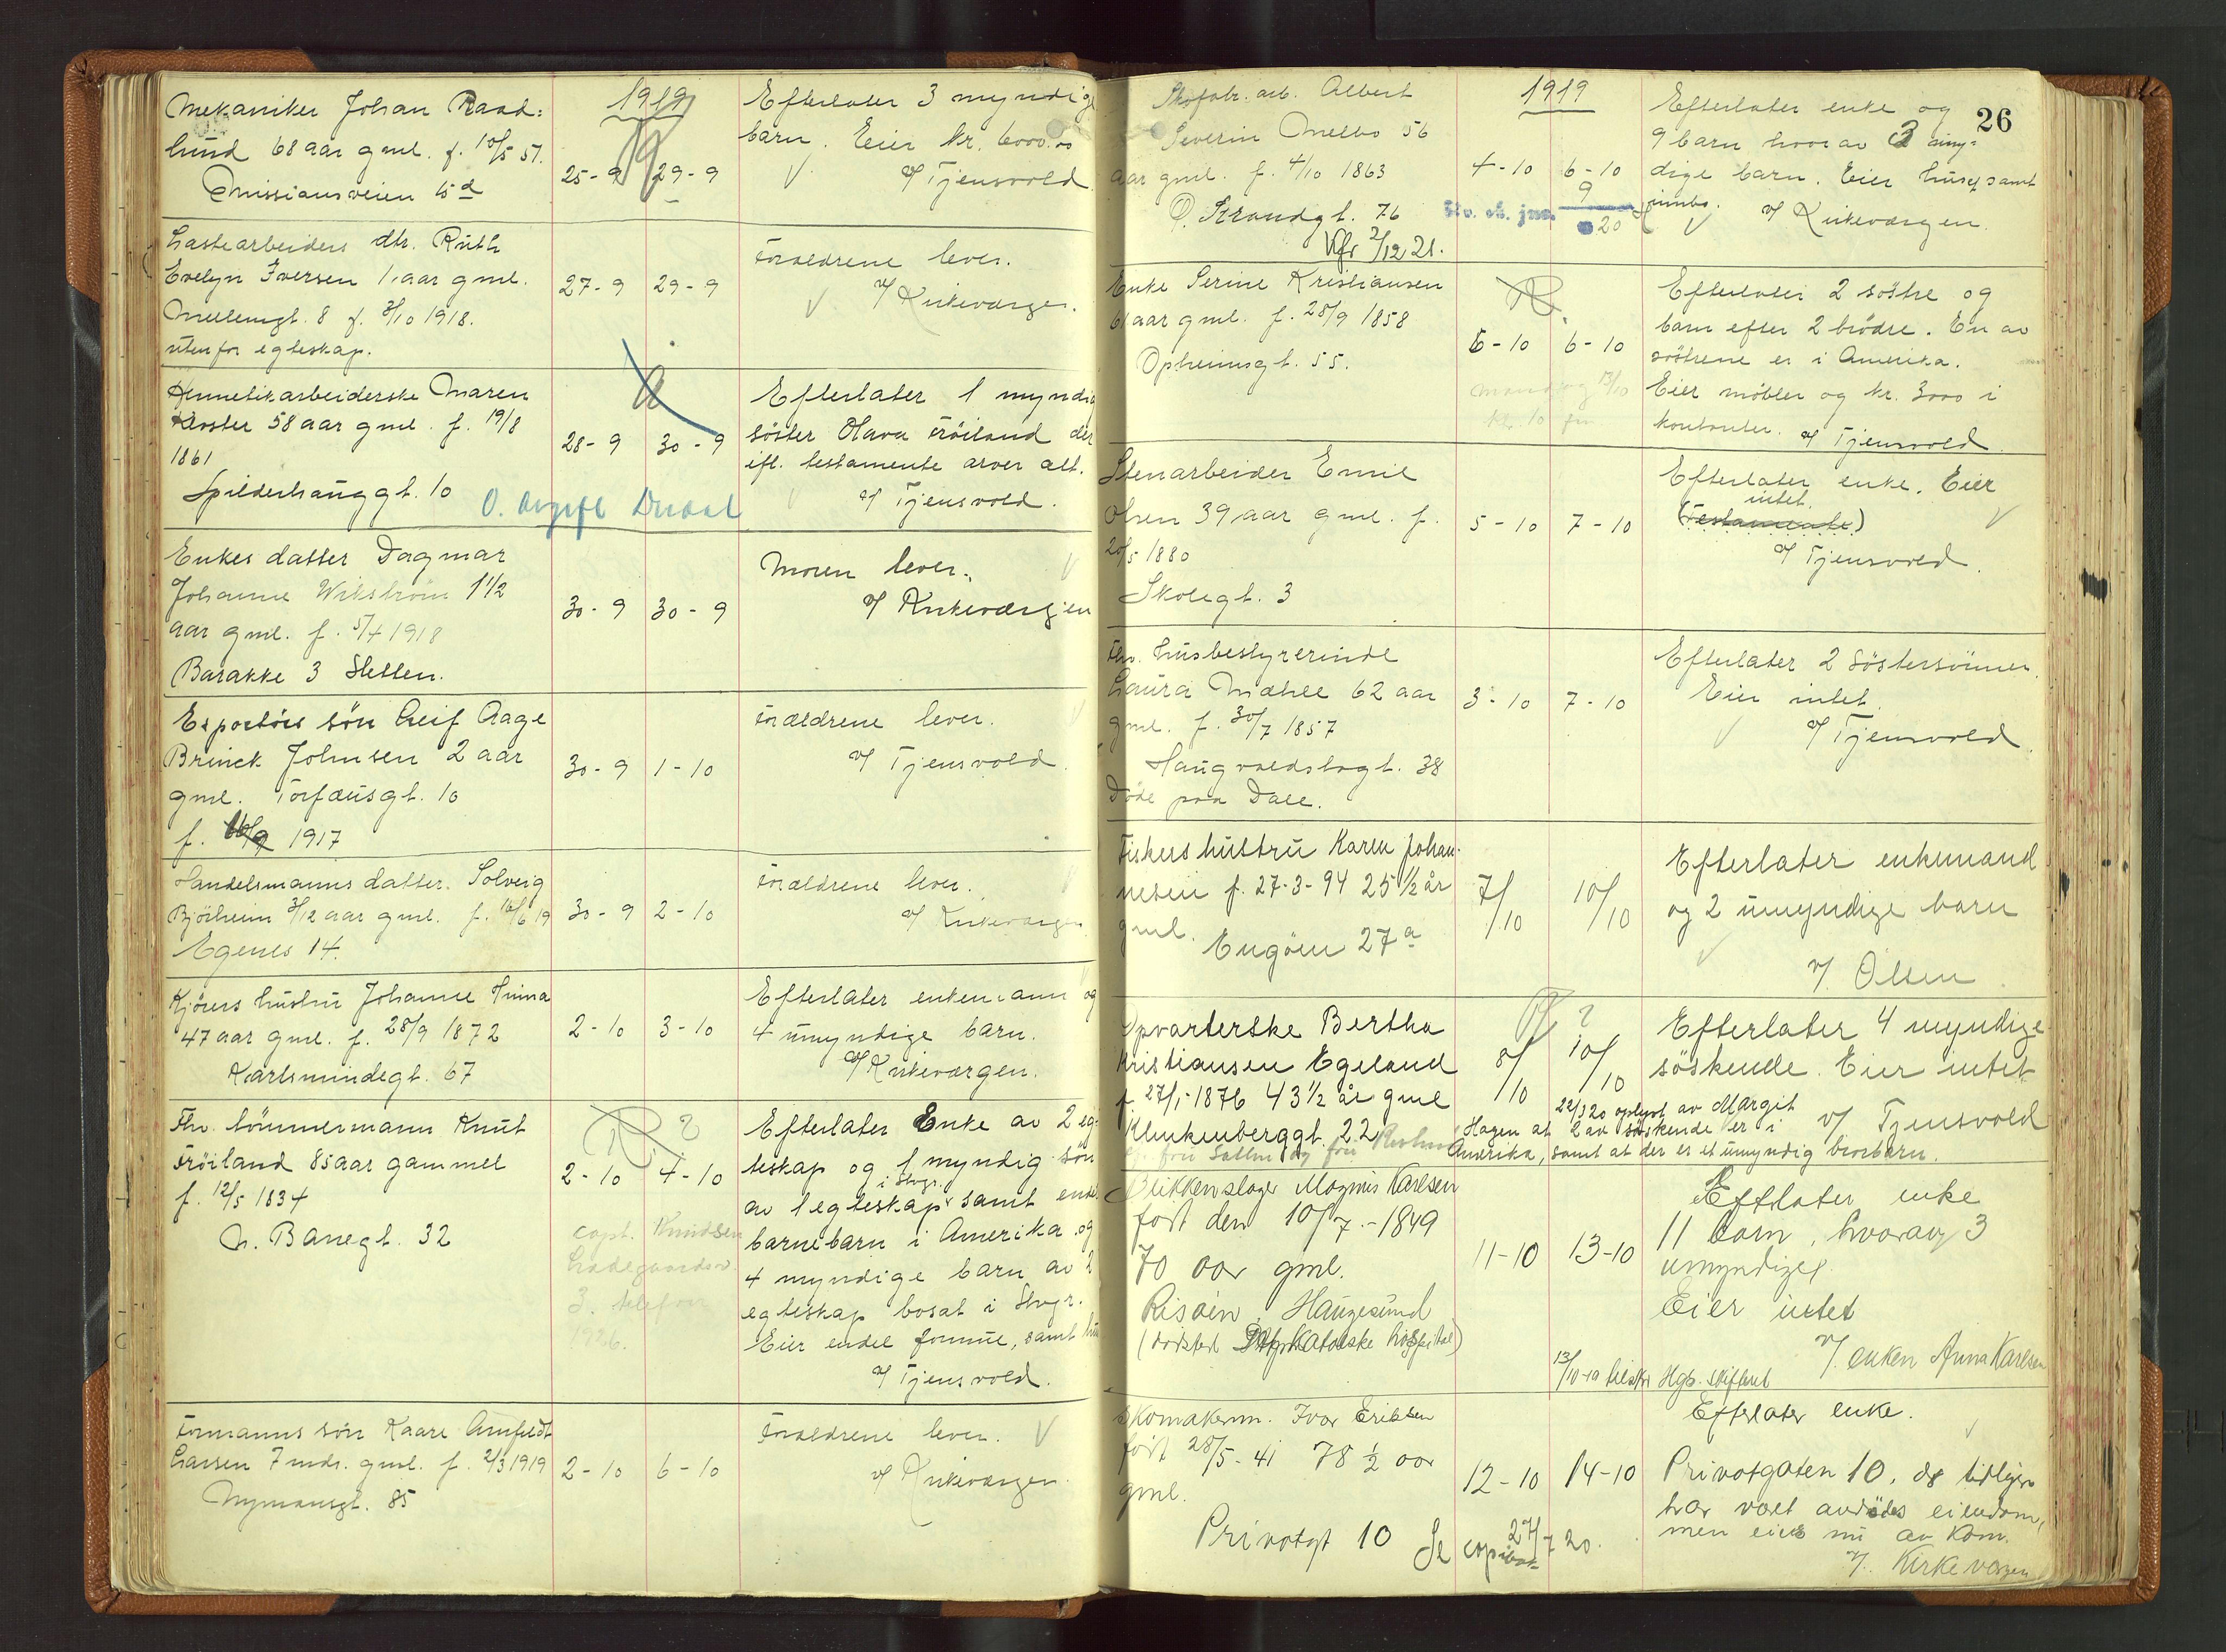 1919
Mekaniker Johan Raad=
lund 68 aar gml. f. 10/5 51.
Missionsveien 15 d
25-9 29-9
Efterlater 3 myndige
barn. Eier kr. 6000.00
v/ Tjensvold
Lastearbeiders dtr. Ruth
Evelyn Iversen 1 aar gml.
Møllengt. 8 f. 3/10 1918.
utenfor egteskap.
27-9 29-9
Forældrene lever.
v/ Kirkeværgen.
Hermetikarbeiderske Maren
Kloster 58 aar gml. f. 19/8
1861
Spilderhauggt. 10
28-9 30-9
O. avgift Dusal
Efterlater 1 myndig
söster Olava Fröiland der
ifl. testamente arver alt.
v/ Tjensvold.
Enkes datter Dagmar
Johanne Wikström 1 1/2
aar gml. f. 5/4 1918
Barakke 3 Sletten.
30-9 30-9
Moren lever.
v/ Kirkeværgen
Exportörs sön Leif Aage
Brinck Johnsen 2 aar
gml. Torfæusgt. 10
f. 16/9 1917
30-9 1-10
Forældrene lever.
v/ Tjensvold.
Handelsmanns datter. Solveig
Bjórheim 3/12 aar gml. f. 16/6 19
Egenes 14.
30-9 2-10
Forældrene lever.
v/ Kirkeværgen
Kjörers hustru Johanne Hinna
47 aar gml. f. 28/9 1872
Karlsmindegt. 67
2-10 3-10
Efterlater enkemann og
4 umyndige barn.
v/ Kirkeværgen.
Fhv. tömmermann Knut
Fröiland 85 aar gammel
f. 12/5 1834
N. Banegt. 32
?
2-10 4-10
capt. Knudsen
Ladegaardsv.
3. telefon
1926.
Efterlater Enke av 2 eg-
teskap og 1 myndig sön
i Stvgr.
av 1 egteskap samt endel
barnebarn i Amerika og
4 myndige barn av 2
egteskap bosat i Stvgr.
Eier endel formue, samt hus
v/ Tjensvold.
Formanns sön Kaare Arnfeldt
Larsen 7 mdr. gml. f. 2/3 1919
Nymansgt. 85
2-10 6-10
Forældrene lever.
v/ Kirkeværgen.
26
1919
Skofabr. arb. Albert
Severin Melbo 56
aar gml. f. 4/10 1863
Ö. Strandgt. 76
Kfr 2/12 21.
4-10 6-10
9
20
Efterlater enke og
9 barn hvorav 3 umyn=
dige barn. Eier hus samt
innbo.
v/ Kirkeværgen.
Enke Serine Kristiansen
61 aar gml. f. 28/9 1858
Opheimsgt. 55.
6-10 6-10
mandag 13/10
kl. 10 fm
Efterlater 2 söstre og
barn efter 2 brödre. En av
söstrene er i Amerika.
Eier möbler og kr. 3000 i
kontanter. v/ Tjensvold
Stenarbeider Emil
Olsen 39 aar gml. f.
20/5 1880
Skolegt. 3
5-10 7-10
Efterlater enke. Eier
intet.
(Testamente)
v/ Tjensvold.
Fhv. husbestyrerinde
Laura Mæhle 62 aar
gml. f. 30/7 1857
Haugvaldstadgt. 38
Döde paa Dale.
3-10 7-10
Efterlater 2 söstersönner.
Eier intet.
v/ Tjensvold
Fiskers hustru Karen Johan-
nesen f. 27-3-94 25 1/2 år
gml. Engöen 27 a
7/10 10/10
Efterlater enkemand
og 2 umyndige barn
v/. Olsen
Opvarterske Bertha
Kristiansen Egeland
f 27/1-1876 43 1/2 år gml
Klinkenberggt. 22
?
8/10 10/10
Efterlater 4 myndige
söskende. Eier intet
v/ Tjensvold
22/3 20 oplyst av Margit
Hagen at 2 av söskende er i
Amerika, samt at der er et umyndig brorbarn.
Blikkenslager Magnus Karlsen
födt den 10/7.-1849
70 aar gml.
Risöen, Haugesund
(dödsted St. katolske hospital)
11-10 13-10
Efterlater enke
11 barn, hvorav 3
umyndige.
Eier intet
v/. enken Anna Karlsen
13/10-19 tilskr Hgs. skifteret
Skomakerm. Ivar Eriksen
födt 28/5-41 78 1/2 aar
gml.
Privatgt 10
12-10 14-10
Se copibok 27/7 20.
Efterlater enke.
Privatgaten 10, der tidligere
har vært avdödes eiendom,
men eies nu av kom.
v/. Kirkeværgen